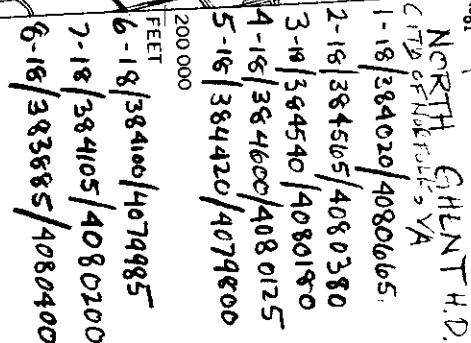 NORTH GHENT H.D.
CITY OF NORFOLK, VA
1-18/384020/4080665
2-18/384565/4080380
3-18/384540/4080180
4-18/384600/4080125
5-18/384420/4079800
200 000
FEET
6-18/384100/4079985
7-18/384105/4080200
8-18/383885/4080400